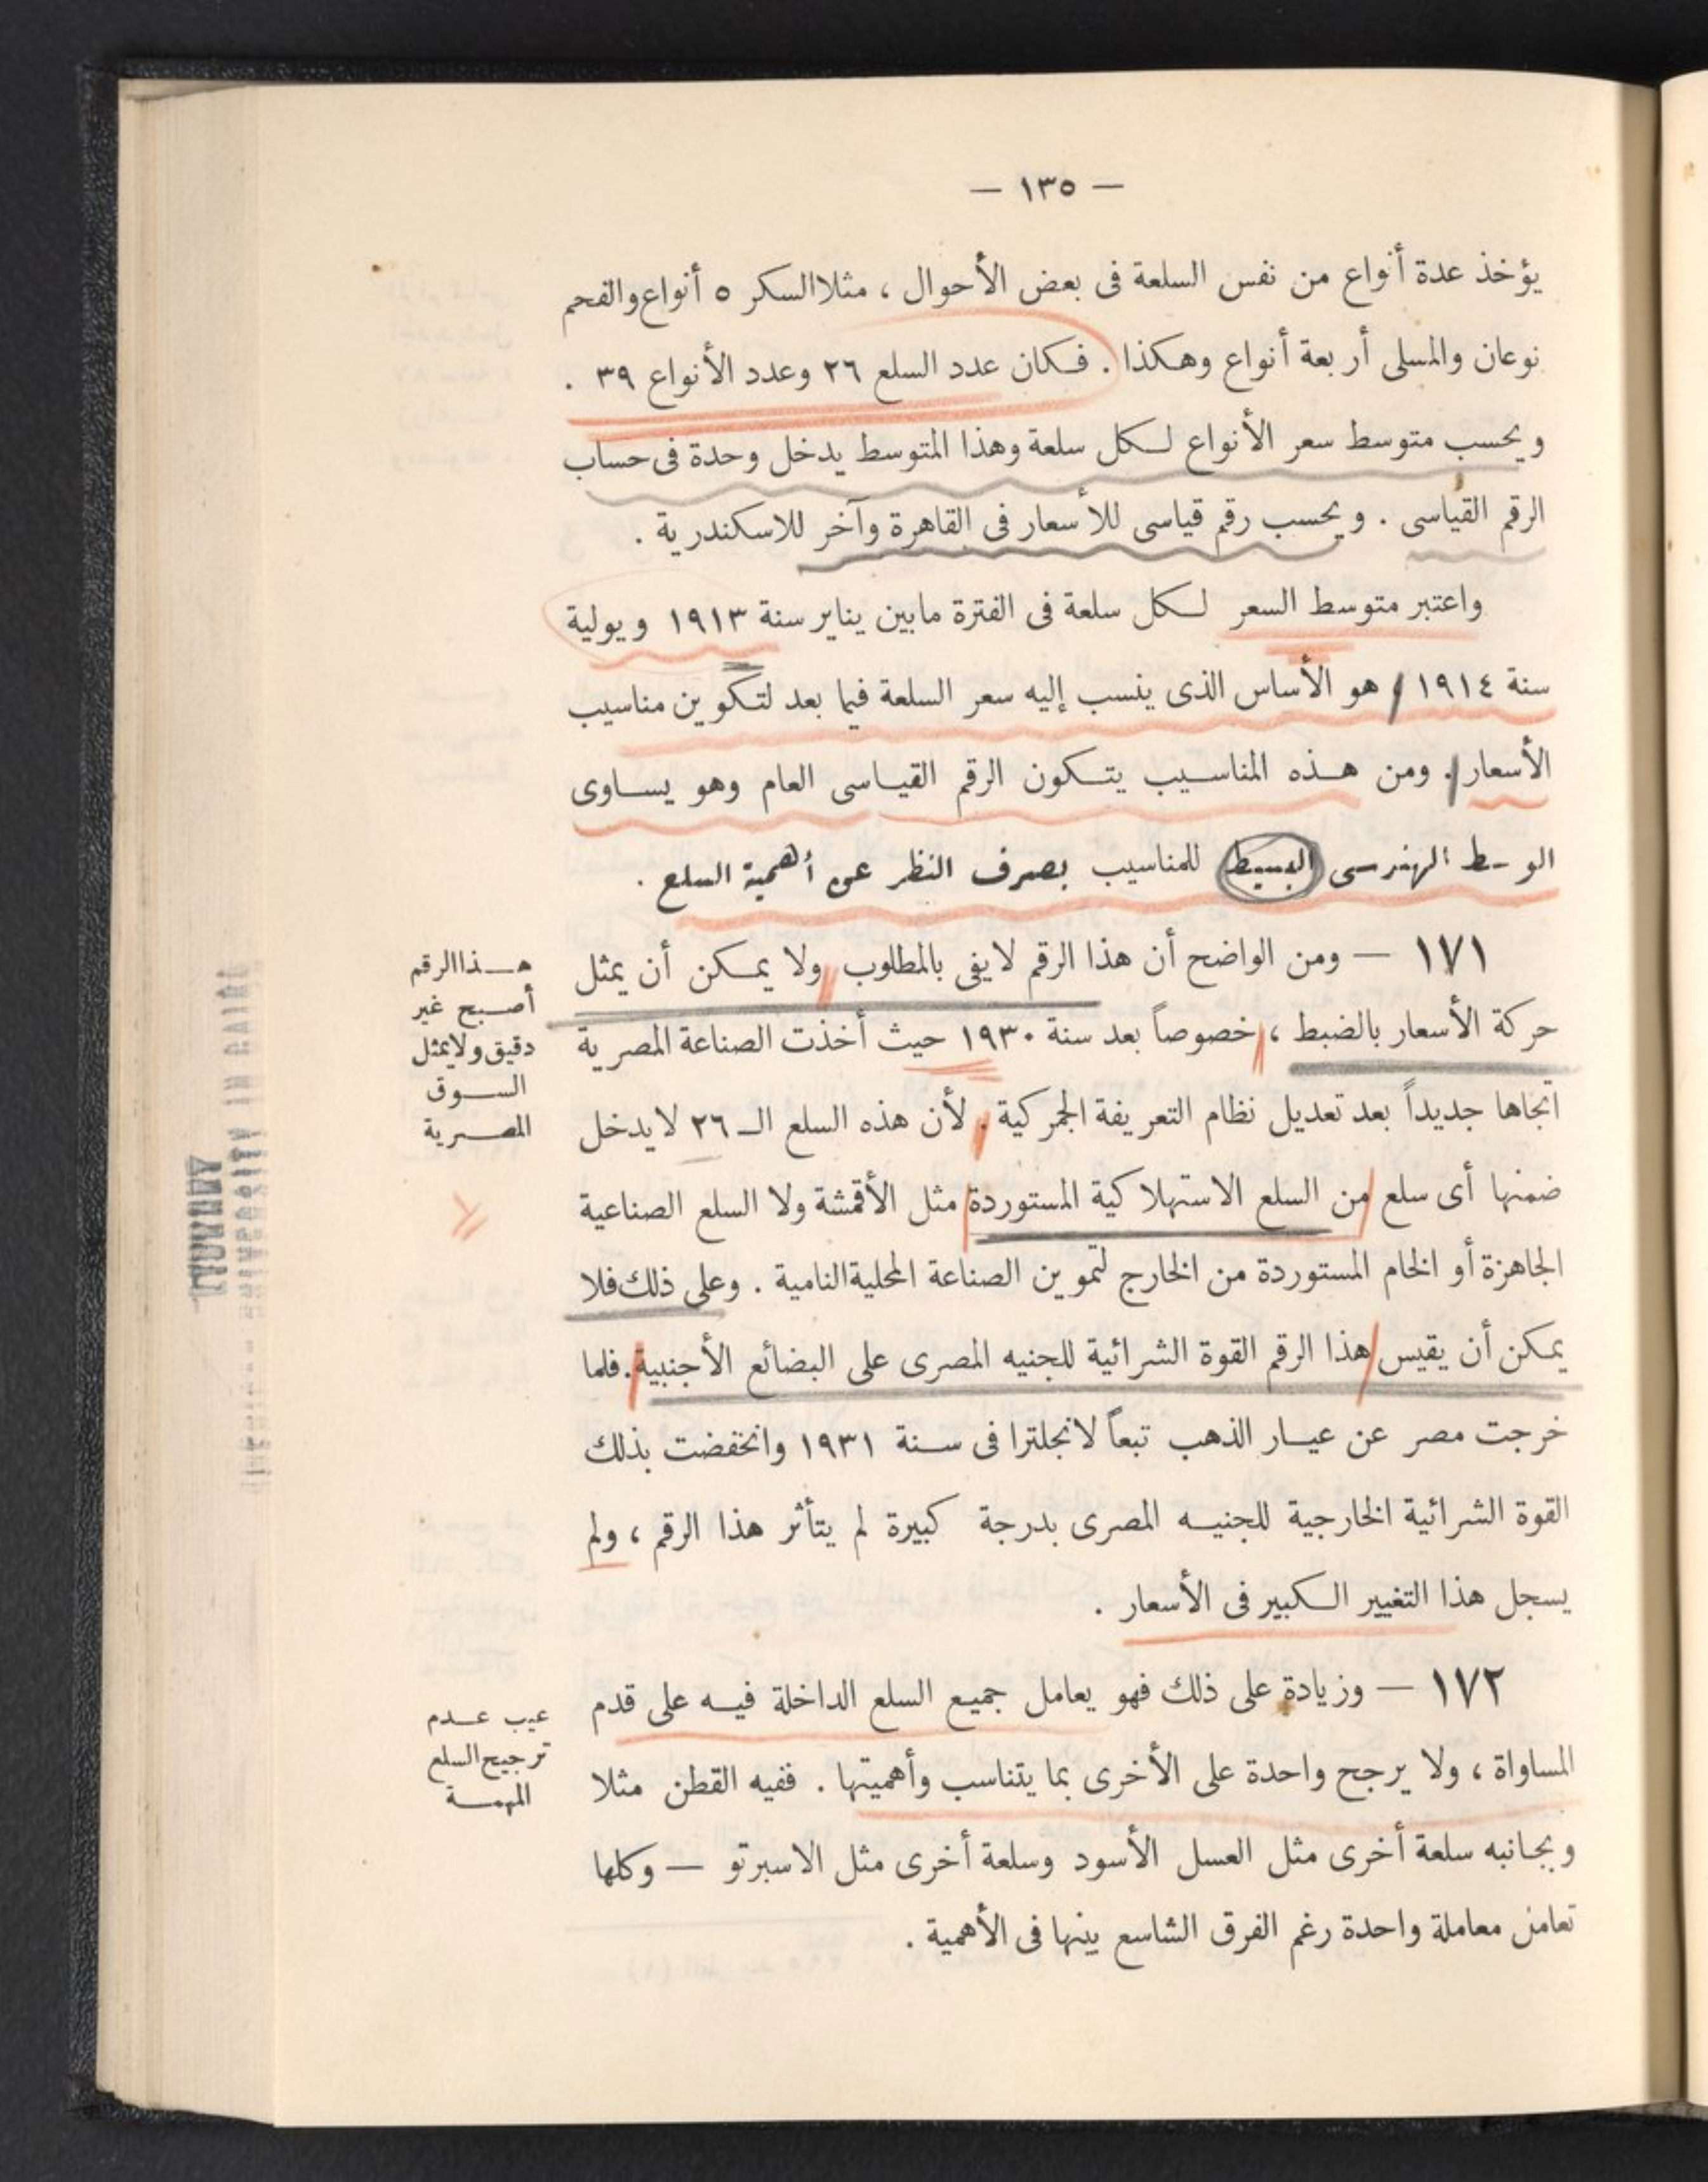 — ١٣٥ —
يؤخذ عدة أنواع من نفس السلعة فى بعض الأحوال ، مثلا السكر ٥ أنواع والفحم
نوعان والمسلى أربعة أنواع وهكذا . فكان عدد السلع ٢٦ وعدد الأنواع ٣٩ .
ويحسب متوسط سعر الأنواع لكل سلعة وهذا المتوسط يدخل وحدة فى حساب
الرقم القياسى . ويحسب رقم قياسى للأسعار فى القاهرة وآخر للاسكندرية .
واعتبر متوسط السعر لكل سلعة فى الفترة مابين يناير سنة ١٩١٣ ويولية
سنة ١٩١٤ هو الأساس الذى ينسب إليه سعر السلعة فيما بعد لتكوين مناسيب
الأسعار . ومن هذه المناسيب يتكون الرقم القياسى العام وهو يساوى
الوسط الهندسى البسيط للمناسيب بصرف النظر عن أهمية السلع .
١٧١ — ومن الواضح أن هذا الرقم لايفى بالمطلوب ولا يمكن أن يمثل
حركة الأسعار بالضبط ، خصوصاً بعد سنة ١٩٣٠ حيث أخذت الصناعة المصرية
اتجاها جديداً بعد تعديل نظام التعريفة الجمركية . لأن هذه السلع الـ ٢٦ لايدخل
ضمنها أى سلع من السلع الاستهلاكية المستوردة مثل الأقمشة ولا السلع الصناعية
الجاهزة أو الخام المستوردة من الخارج لتموين الصناعة المحلية النامية . وعلى ذلك فلا
يمكن أن يقيس هذا الرقم القوة الشرائية للجنيه المصرى على البضائع الأجنبية . فلما
خرجت مصر عن عيار الذهب تبعاً لانجلترا فى سنة ١٩٣١ وانخفضت بذلك
القوة الشرائية الخارجية للجنيه المصرى بدرجة كبيرة لم يتأثر هذا الرقم ، ولم
يسجل هذا التغيير الكبير فى الأسعار .
١٧٢ — وزيادة على ذلك فهو يعامل جميع السلع الداخلة فيه على قدم
المساواة ، ولا يرجح واحدة على الأخرى بما يتناسب وأهميتها . ففيه القطن مثلا
وبجانبه سلعة أخرى مثل العسل الأسود وسلعة أخرى مثل الاسبرتو — وكلها
تعامل معاملة واحدة رغم الفرق الشاسع بينها فى الأهمية .
هذا الرقم
أصبح غير
دقيق ولايمثل
السوق
المصرية
عيب عدم
ترجيح السلع
المهمة